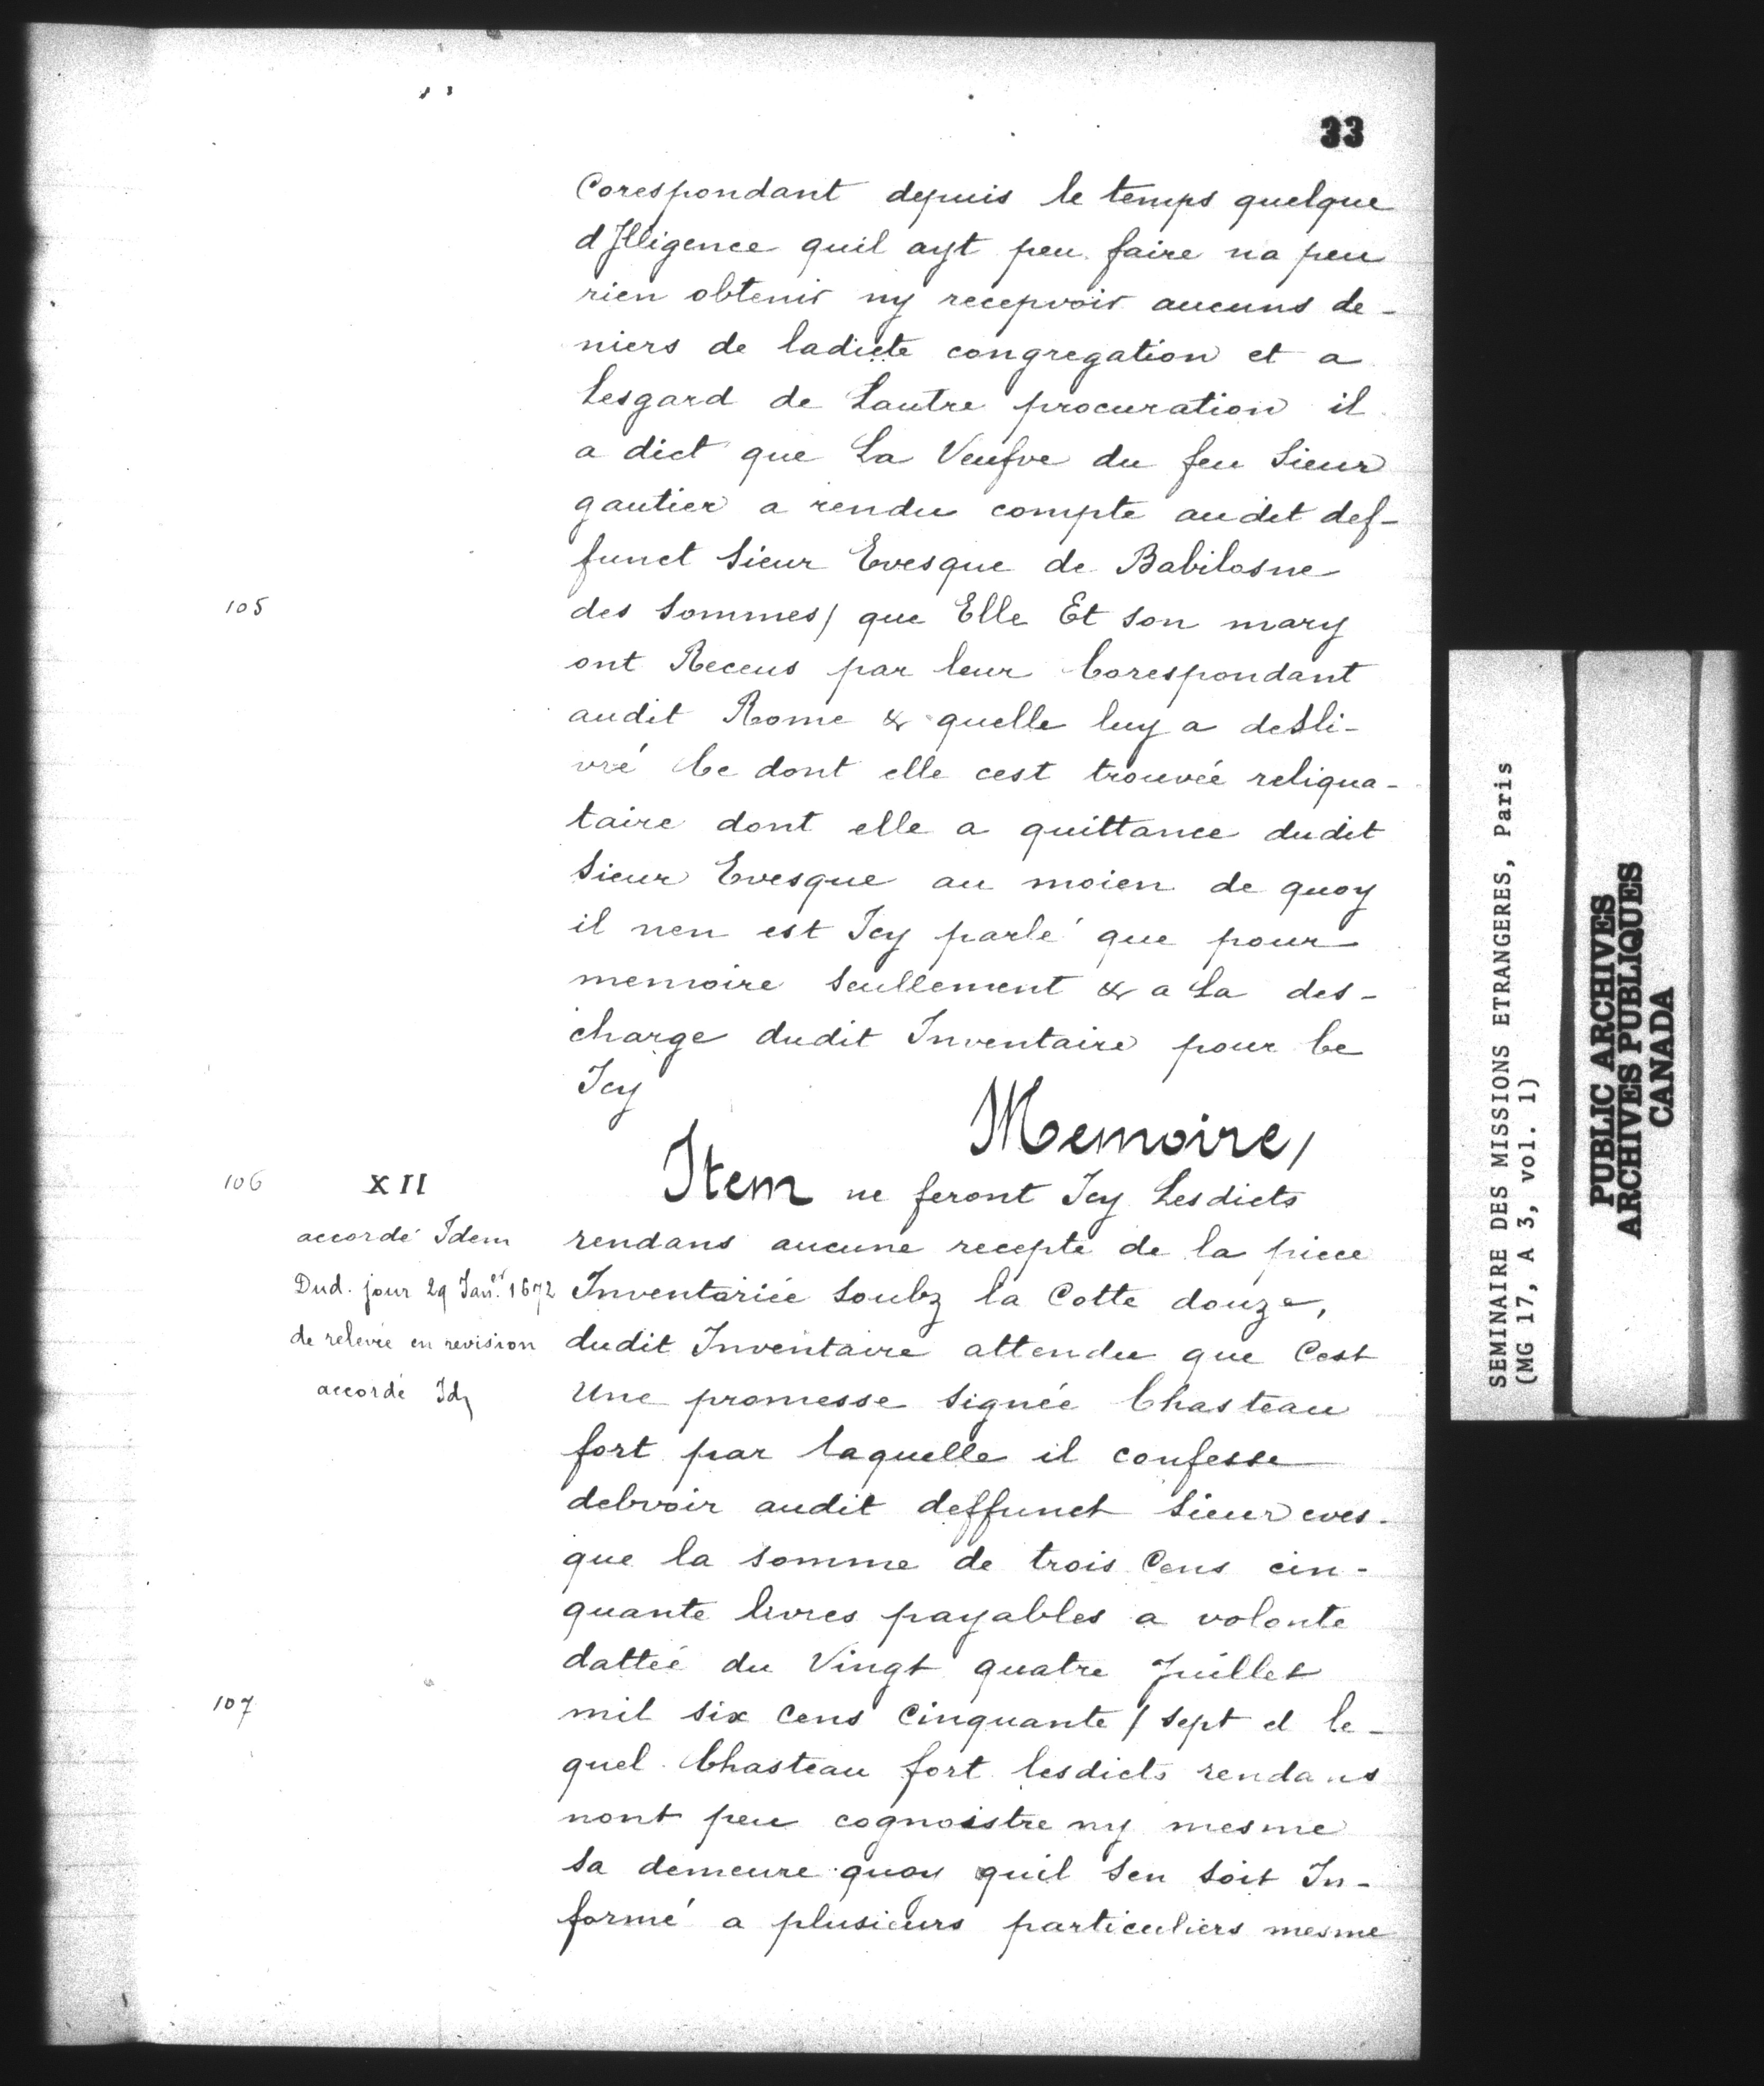 33
Corespondant depuis le temps quelque
dJlligence quil ayt peu faire na peu
rien obtenir ny recepvoir aucuns de-
niers de ladicte congregation et a
Lesgard de Lautre procuration il
a dict que La Veufve du feu Sieur
gautier a rendu compte audit def-
funct Sieur Evesque de Babilosne
105
des Sommes/ que Elle Et son mary
ont Receus par leur Corespondant
audit Rome & quelle luy a desli-
vré Ce dont elle cest trouvée reliqua-
taire dont elle a quittance dudit
Sieur Evesque au moien de quoy
il nen est Icy parlé que pour
memoire Seullement & a La des-
charge dudit Inventaire pour Ce
Icy
Memoire,
106
XII
Item ne feront Icy Lesdicts
accordé Idem
rendans aucune recepte de la piece
Dud. jour 29 Janer 1672
Inventoriée Soubz la Cotte douze,
de relevée en revision
dudit Inventaire attendu que Cest
accordé Id
Une promesse Signée Chasteau
fort par laquelle il confesse
debvoir audit deffunct Sieur eves-
que la somme de trois Cens cin-
quante livres payables a volonte
dattée du Vingt quatre Juillet
107
mil six cens Cinquante / sept et le-
quel Chasteau fort lesdicts rendans
nont peu cognoistre ny mesme
Sa demeure quoy quil Sen Soit In-
formé a plusieurs particuliers mesme
SEMINAIRE DES MISSIONS ETRANGERES, Paris
(MG 17, A 3, vol. 1)
PUBLIC ARCHIVES
ARCHIVES PUBLIQUES
CANADA